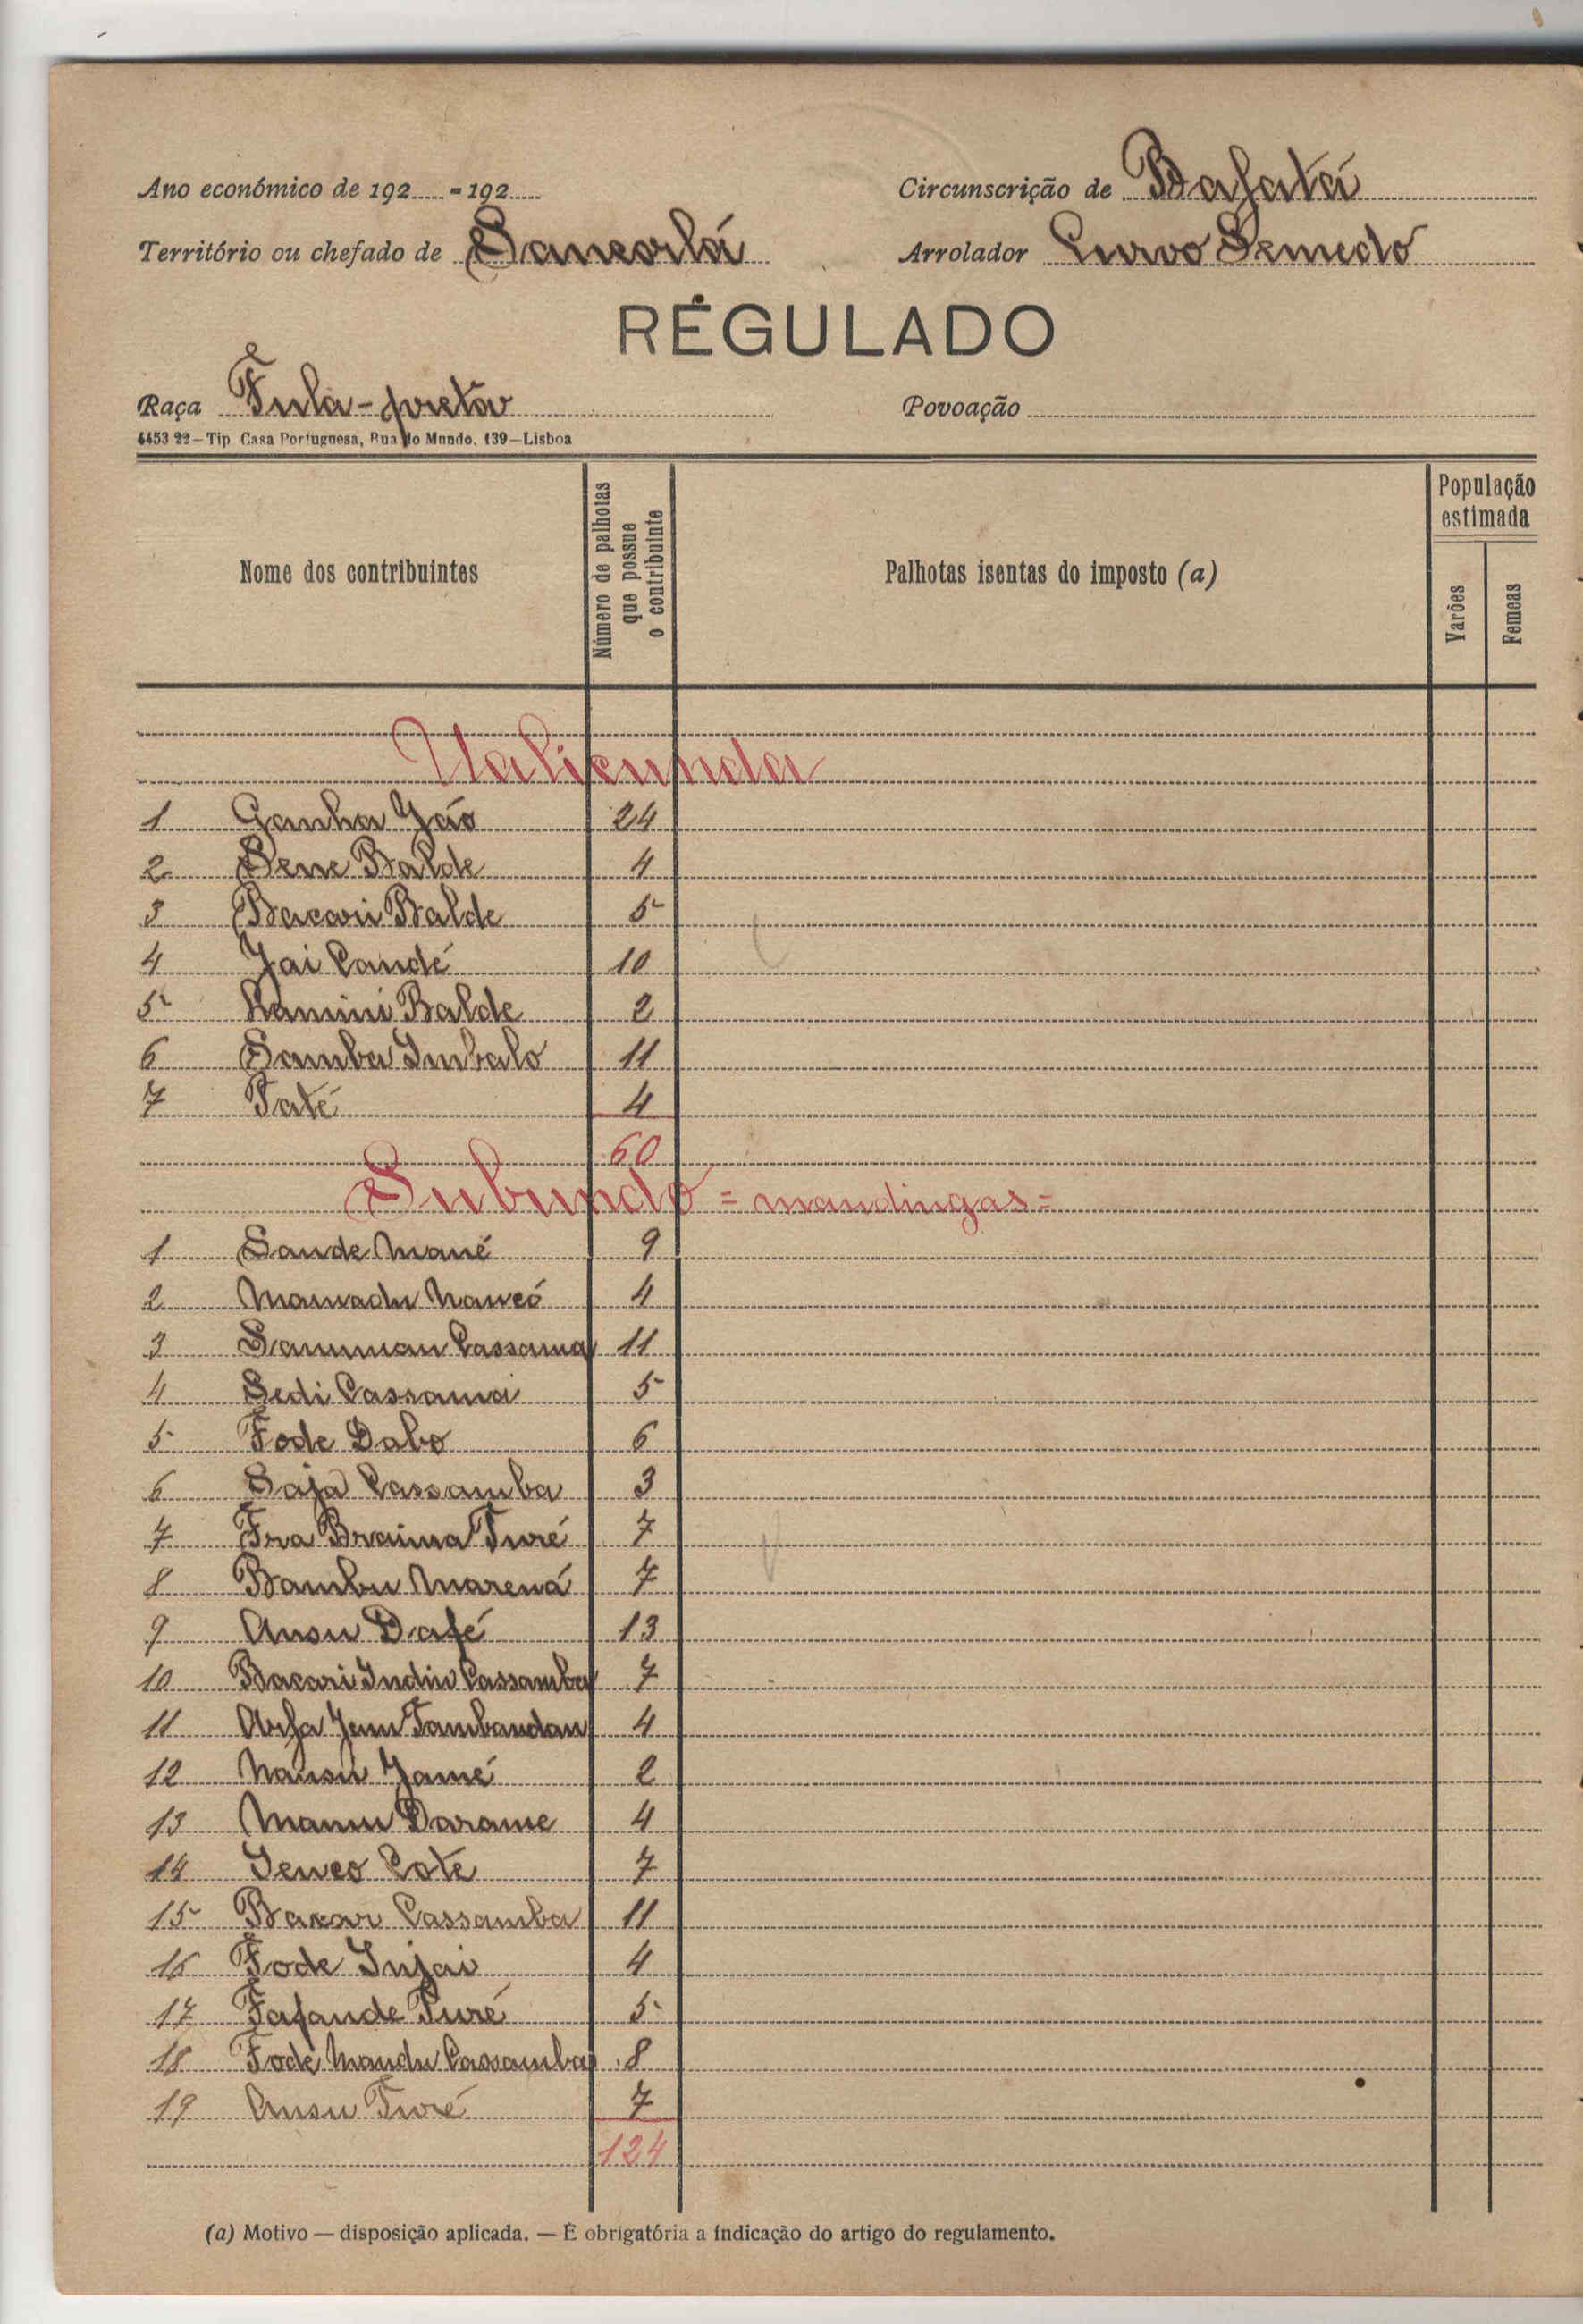 Ano económico de 192..... = 192.....
Circunscrição de Bafatá
Território ou chefado de Sancorlá
Arrolador Curvo Semedo
RÉGULADO
Raça Fula-preta
Povoação
4453 22—Tip Casa Portuguesa, Rua do Mundo, 139—Lisboa
Nome dos contribuintes
Número de palhotas que possue o contribuinte
Palhotas isentas do imposto (a)
População estimada
Varões
Femeas
Ualicunda
1 Ganha Jáo 24
2 Sene Balde 4
3 Bacari Balde 5
4 Jai Candé 10
5 Lamini Balde 2
6 Samba Imbalo 11
7 Taté 4
60
Subundo = mandingas =
1 Sande Mané 9
2 Mamadu Nancó 4
3 Samman Cassama 11
4 Sedi Cassama 5
5 Fode Dabo 6
6 Saja Cassamba 3
7 Fra Braima Turé 7
8 Bambu Marená 7
9 Ansu Dafé 13
10 Bacari Indin Cassamba 7
11 Arfa Jem Tambandan 4
12 Nansu Jamé 2
13 Manu Darame 4
14 Senco Cote 7
15 Bacar Cassamba 11
16 Fode Injai 4
17 Fafande Turé 5
18 Fodè Mandu Cassamba 8
19 Ansu Turé 7
124
(a) Motivo — disposição aplicada. — É obrigatória a indicação do artigo do regulamento.